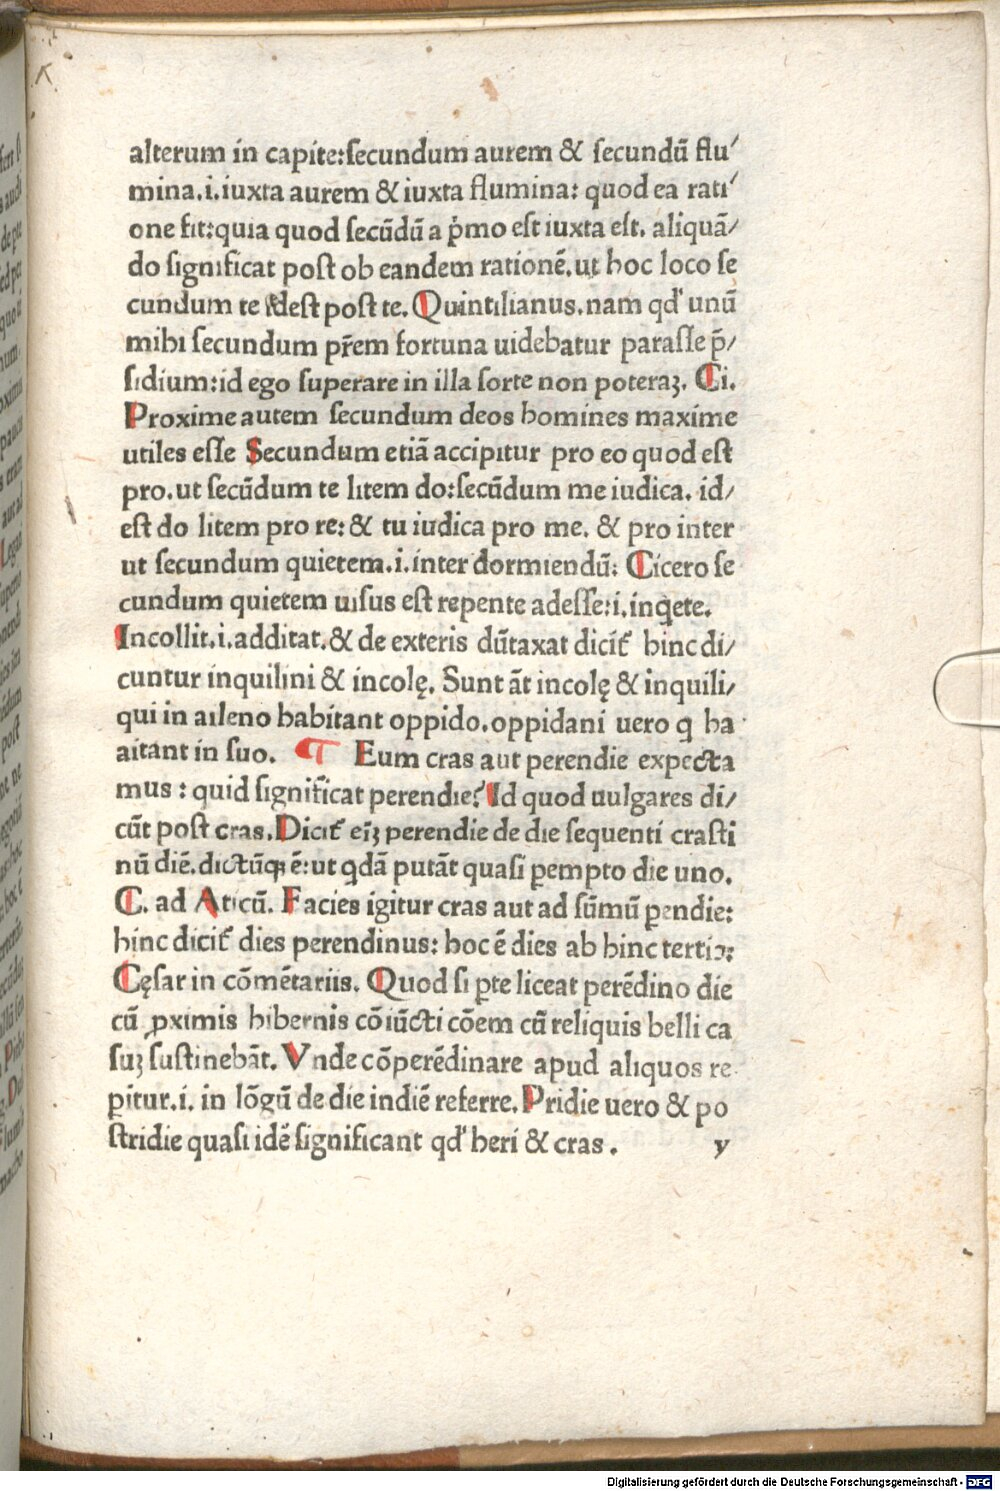 alterum in capite:ſecundum aurem & ſecundū flu/
mina.i.iuxta aurem & iuxta flumina: quod ea rati/
one fit:quia quod ſecūdū a ṗmo eſt iuxta eſt. aliquā/
do ſignificat poſt ob eandem rationē.ut hoc loco ſe
cundum te ideſt poſt te. Quintilianus.nam qđ unū
mihi ſecundum pr̄em fortuna uidebatur paraſſe p̄/
ſidium:id ego ſuperare in illa ſorte non poteraꝫ. Ci.
Proxime autem ſecundum deos homines maxime
utiles eſſe Secundum etiā accipitur pro eo quod eſt
pro.ut ſecūdum te litem do:ſecūdum me iudica. id/
eſt do litem pro re: & tu iudica pro me. & pro inter
ut ſecundum quietem.i.inter dormiendū: Cicero ſe
cundum quietem uiſus eſt repente adeſſe:i.inq̇ete.
Incollit.i.additat.& de exteris dūtaxat dicit᷑ hinc di/
cuntur inquilini & incolę. Sunt āt incolę & inquili/
qui in aileno habitant oppido.oppidani uero q ha
aitant in ſuo. ¶ Eum cras aut perendie expecta
mus : quid ſignificat perendie? Id quod uulgares di/
cūt poſt cras. Dicit᷑ eīꝫ perendie de die ſequenti craſti
nū diē.dictūqꝫ ē:ut qdā putāt quaſi ꝑempto die uno.
C. ad Aticū. Facies igitur cras aut ad ſūmū ꝑendie:
hinc dicit᷑ dies perendinus: hoc ē dies ab hinc tertio:
Cęſar in cōmētariis. Quod ſi ꝑte liceat perēdino die
cū ꝓximis hibernis cōiūcti cōem cū reliquis belli ca
ſuꝫ ſuſtinebāt. Vnde cōperēdinare apud aliquos re
ꝑitur.i. in lōgū de die indiē referre. Pridie uero & po
ſtridie quaſi idē ſignificant qđ heri & cras . y
Digitalisierung gefördert durch die Deutsche Forschungsgemeinschaft - DFG